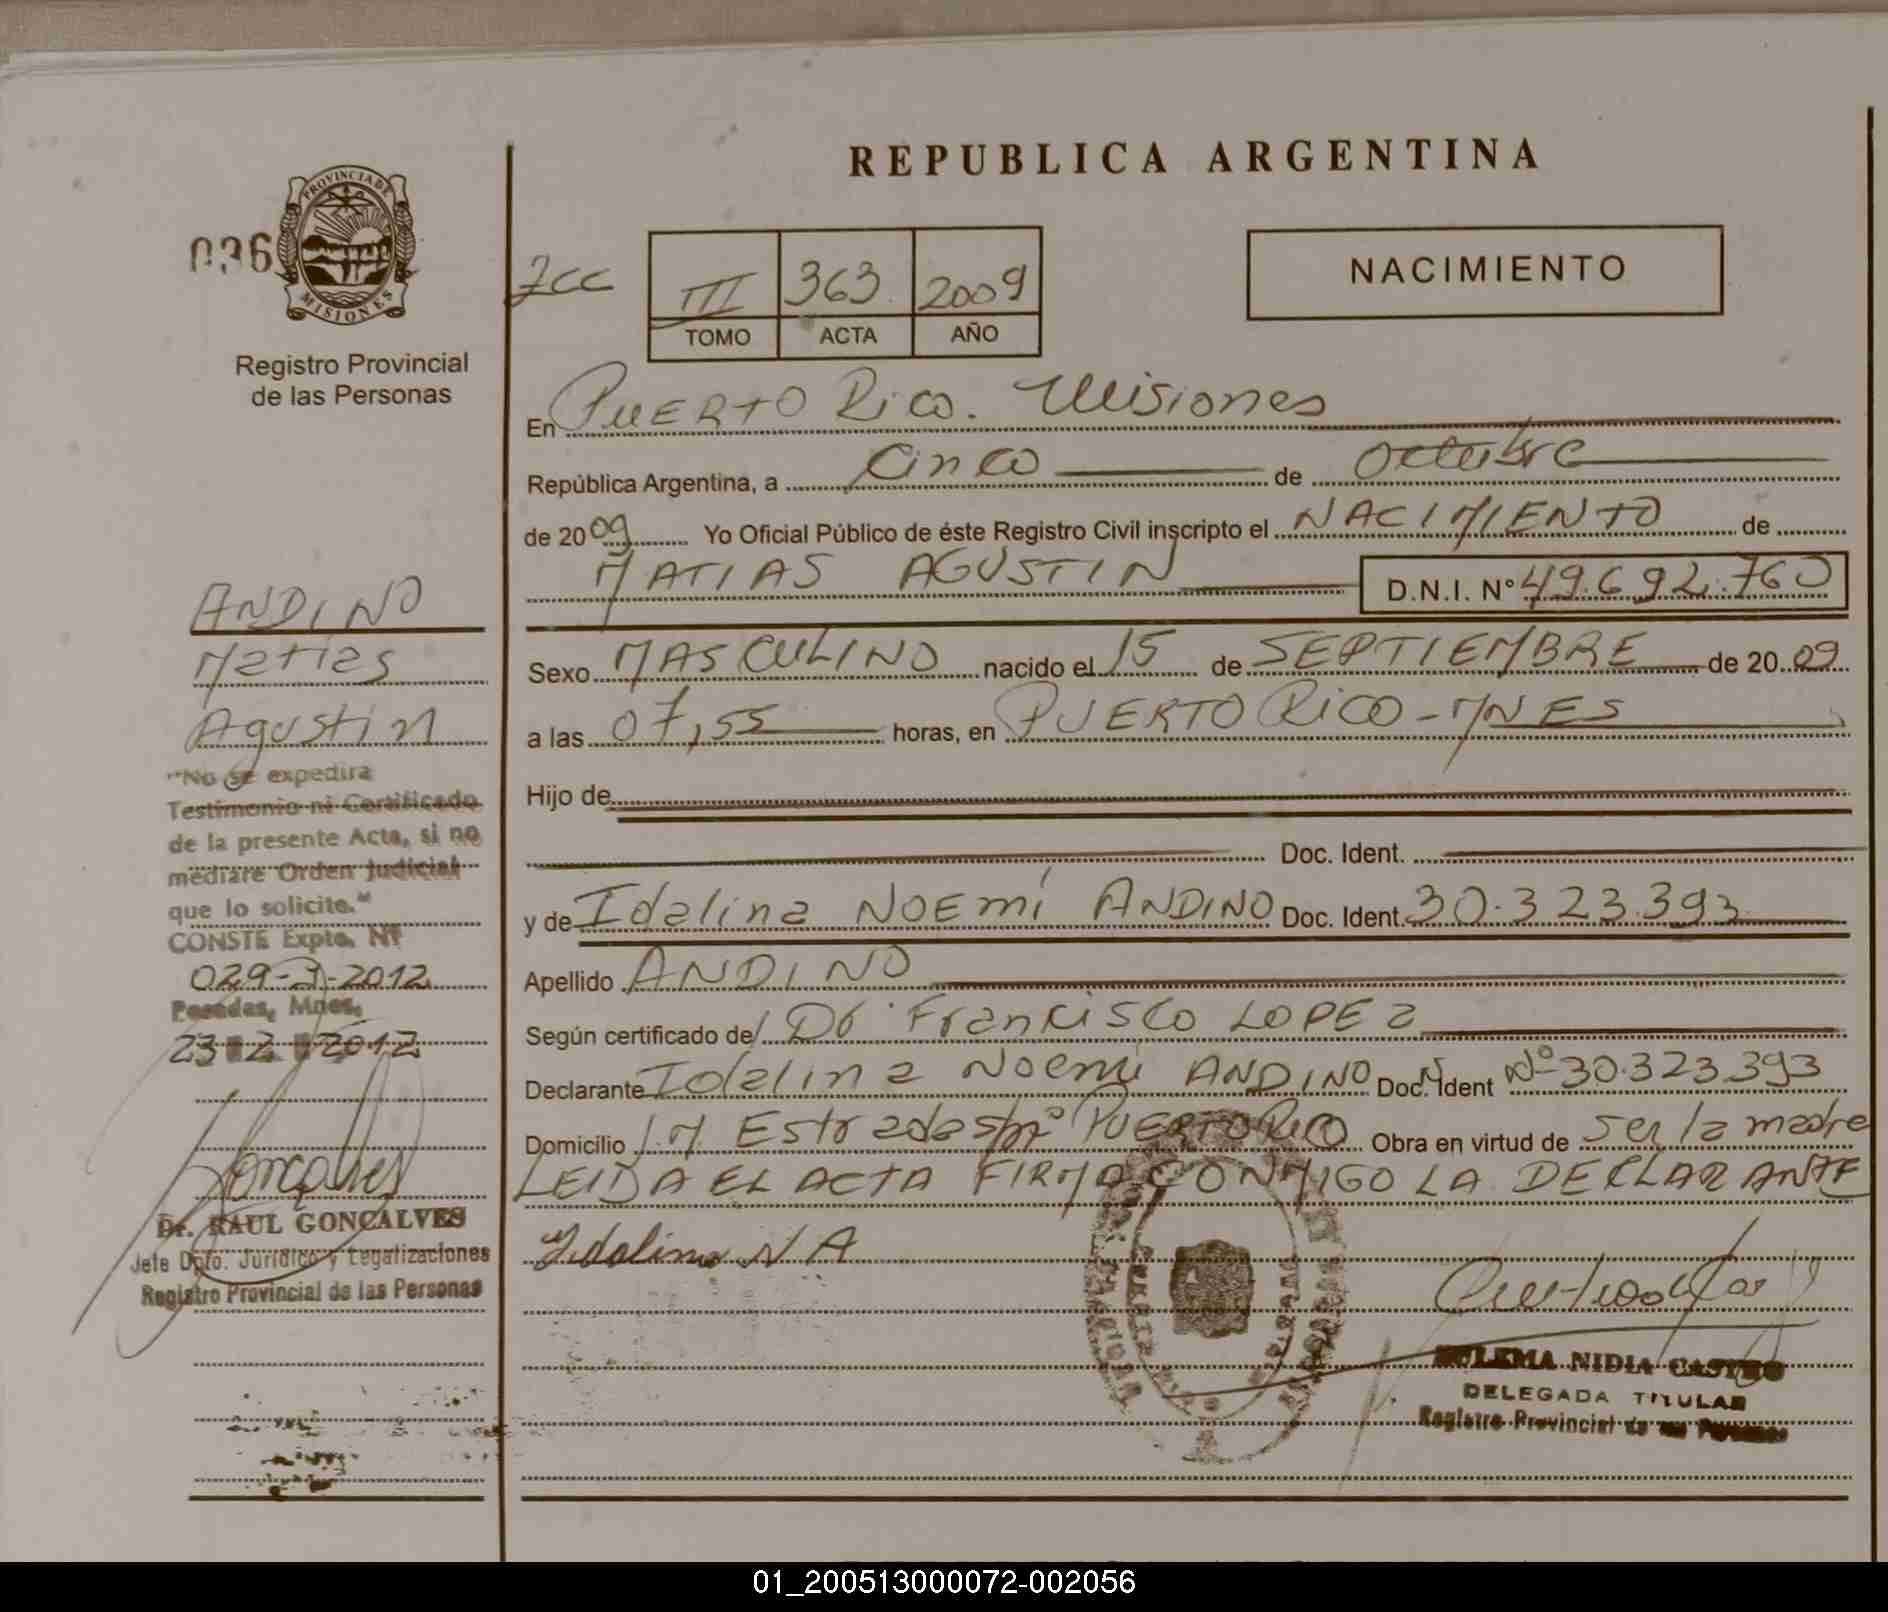 REPUBLICA ARGENTINA
PROVINCIA DE
MISIONES
036
Registro Provincial
de las Personas
III 363 2009
TOMO ACTA AÑO
NACIMIENTO
En PUERTO Rico. Misiones
República Argentina, a Cinco de Octubre
de 2009 Yo Oficial Público de éste Registro Civil inscripto el NACIMIENTO de
MATIAS AGUSTIN D.N.I. N° 49.692.760
Sexo MASCULINO nacido el 15 de SEPTIEMBRE de 2009
a las 07,55 horas, en PUERTO RICO - MNES
Hijo de
Doc. Ident.
y de Idalina NOEMÍ ANDINO Doc. Ident. 30.323.393
Apellido ANDINO
Según certificado del Dr Francisco LOPEZ
Declarante Idalina Noemí ANDINO Doc. Ident N° 30.323.393
Domicilio J.M. Estrada PUERTO RICO Obra en virtud de ser la madre
LEIDA EL ACTA FIRMA CONMIGO LA DECLARANTE
Idalina N A
ZULEMA NIDIA CASTRO
DELEGADA TITULAR
Registro Provincial de las Personas
ANDINO
Matias
Agustin
"No se expedira
Testimonio ni Certificado
de la presente Acta, si no
mediare Orden Judicial
que lo solicite."
CONSTE Expte. Nº
029-J-2012
Posadas, Mnes,
23 2 2012
Goncalves
Dr. RAUL GONCALVES
Jefe Dpto. Jurídico y Legalizaciones
Registro Provincial de las Personas
01_200513000072-002056